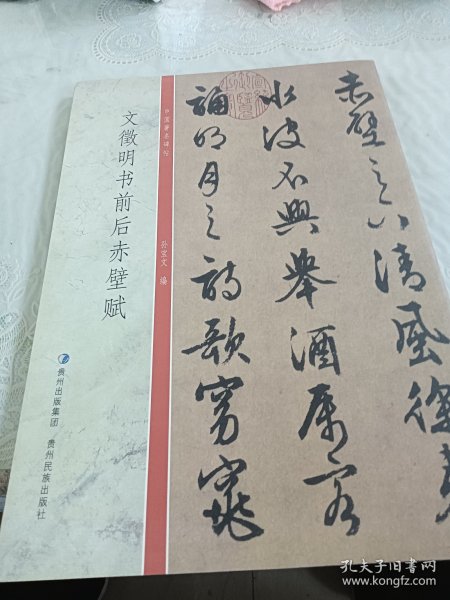 文徵明书前后赤壁赋
中国著名碑帖
孙宝文 编
贵州出版集团
贵州民族出版社
赤壁之下清风徐来
水波不兴举酒属客
诵明月之诗歌窈窕
孔夫子旧书网
www.kongfz.com